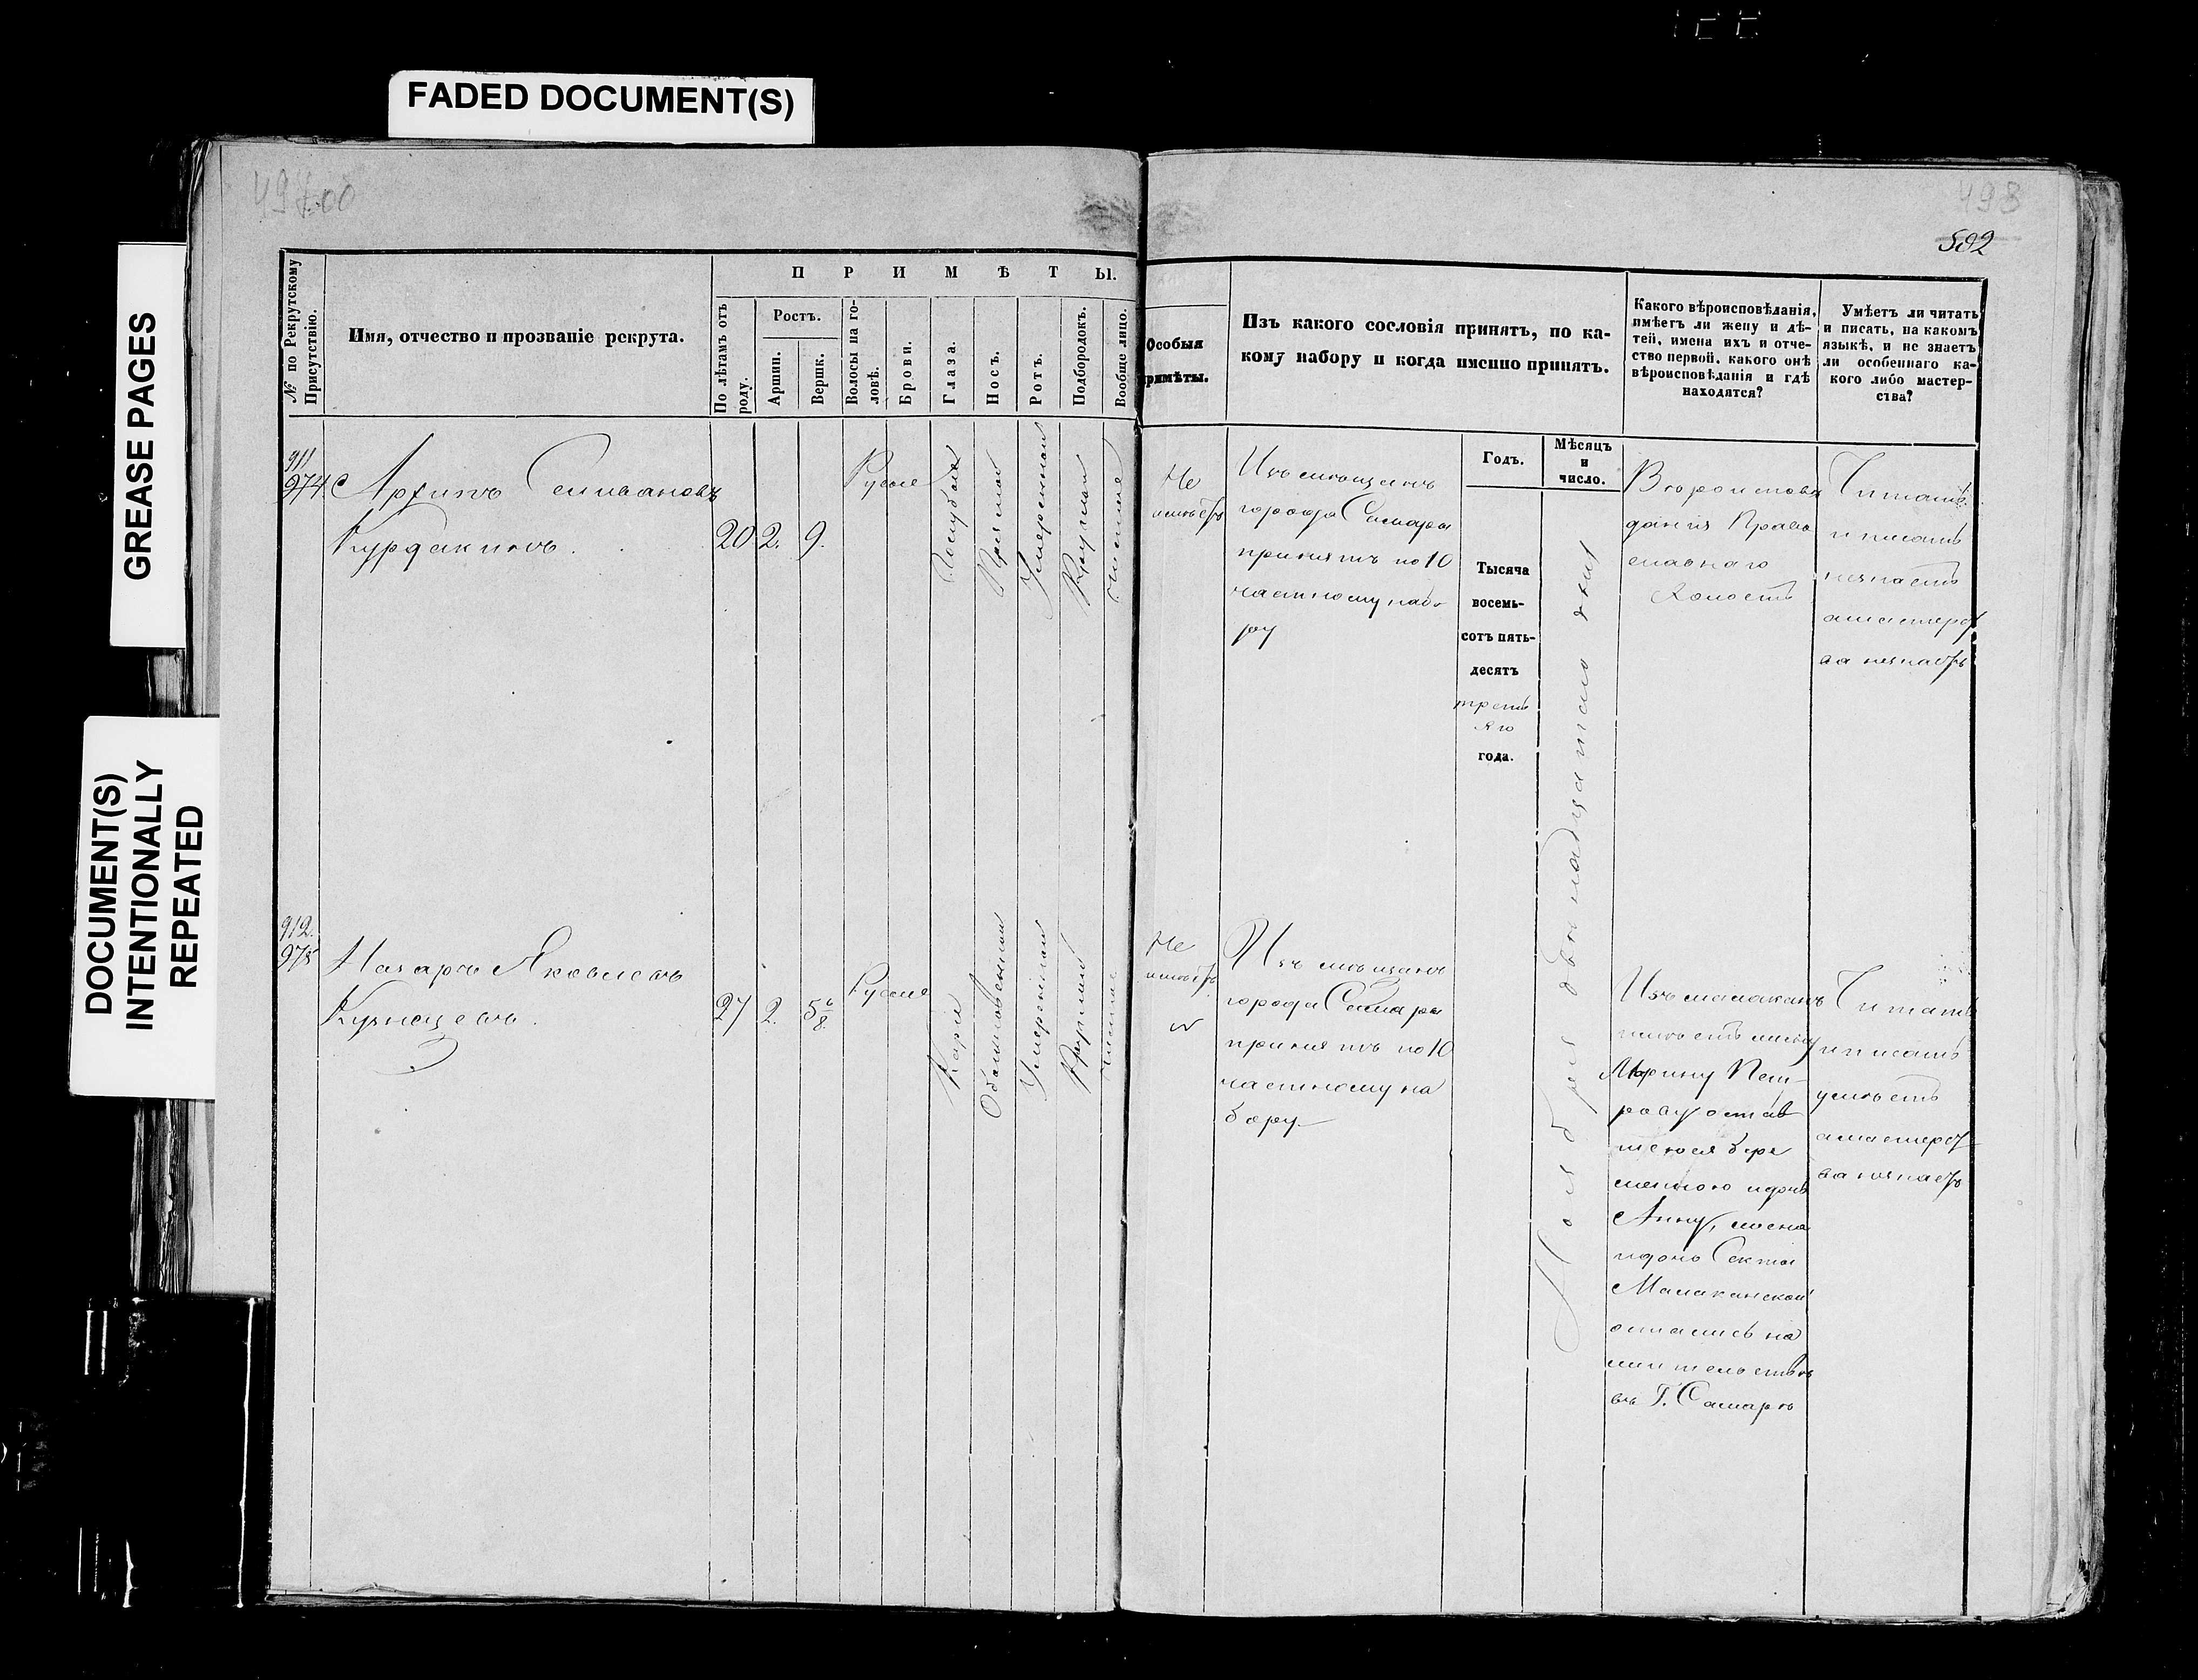 FADED DOCUMENT(S)
GREASE PAGES
DOCUMENT(S)
INTENTIONALLY
REPEATED
498
502
№ по Рекрутскому
Присутствію.
Имя, отчество и прозваніе рекрута.
ПРИМѢТЫ.
По лѣтамъ отъ
роду.
Ростъ.
Аршин.
Вершк.
Волосы на го-
ловѣ.
Брови.
Глаза.
Носъ.
Ротъ.
Подбородокъ.
Вообще лицо.
Особыя
примѣты.
Изъ какого сословія принятъ, по ка-
кому набору и когда именно принятъ.
Какого вѣроисповѣданія,
имѣетъ ли жену и дѣ-
тей, имена ихъ и отче-
ство первой, какого онѣ
вѣроисповѣданія и гдѣ
находятся?
Умѣетъ ли читать
и писать, на какомъ
языкѣ, и не знаетъ
ли особеннаго ка-
кого либо мастер-
ства?
Годъ.
Мѣсяцъ
и
число.
911
974
Архипъ Селивановъ
Курдакинъ.
20 2. 9.
Русые
Голубые
Прямой
Умеренный
Круглый
Чистое
Не
имѣетъ
Изъ мѣщанъ
города Самары
принятъ по 10
частному набо
ру
Тысяча
восемь-
сотъ пять-
десятъ
треть
яго
года.
Ноября двѣнадцатаго дня
Вѣроисповѣ
данія Право
славнаго
Холостъ
Читать
и писать
незнаетъ
амастерст
ва незнаетъ
912.
975
Назаръ Яковлевъ
Кузнецевъ.
27 2. 5 6/8.
Русые
Каріе
Обыкновенный
Умеренный
Круглый
Чистое
Не
имѣетъ
Изъ мѣщанъ
города Самары
принятъ по 10
частному на
бору
Изъ малаканъ
имѣетъ жену
Марину Пет-
рову остав
шеюся бере
менною идочь
Анну, жена
идочь Секты
Малаканской
остались на
жительствѣ
въ Г. Самарѣ
Читать
иписать
умѣетъ
амастерст
ва незнаетъ